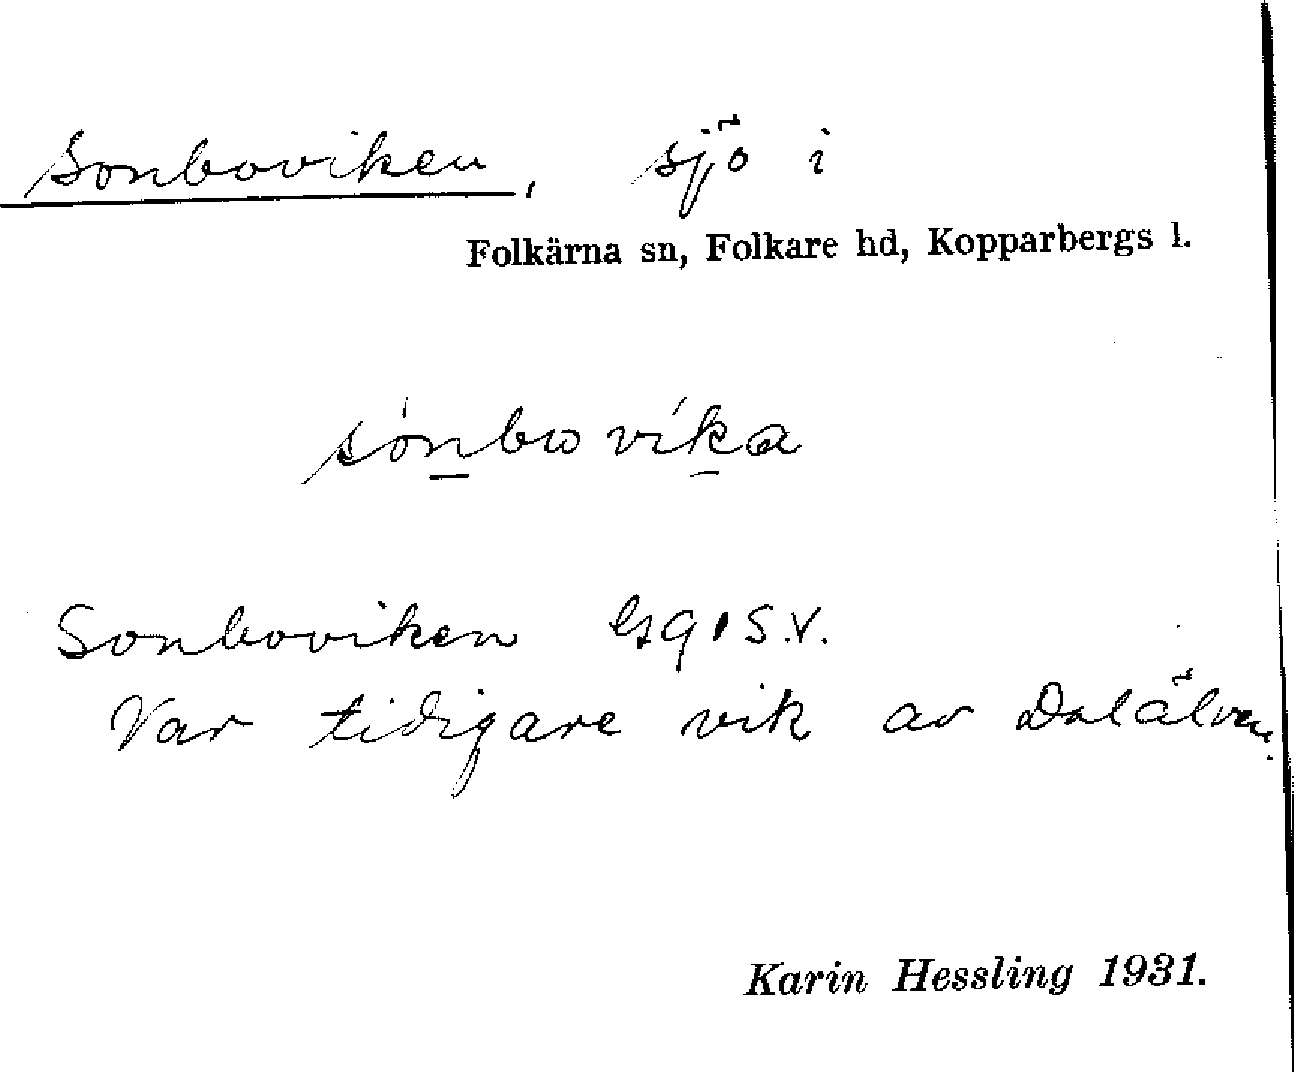 Sonboviken, sjö i
Folkärna sn, Folkare hd, Kopparbergs l.
sónbωvíka
Sonboviken bl 91 S.V.
Var tidigare vik av Dalälven.
Karin Hessling 1931.